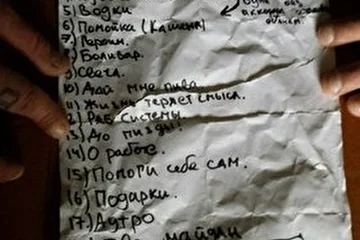 5) Водки
6) Помойка (Кашена)
7) Героин.
8) Боливар.
9) Свеча.
10) Дай мне пива
11) Жизнь теряет смысл.
12) Раб системы
13) До пизды!
14) О работе.
15) Помоги себе сам.
16) Подарки.
17) Аутро